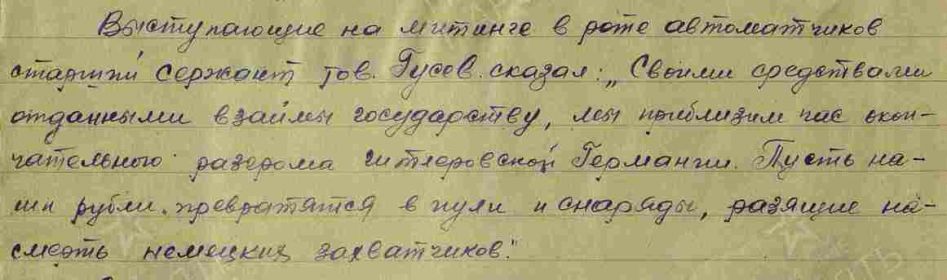 Выступающие на митинге в роте автоматчиков
старший сержант тов. Гусов. сказал: „Своими средствами
отданными взаймы государству, мы приблизим час окон-
чательного разгрома гитлеровской Германии. Пусть на-
ши рубли превратятся в пули и снаряды, разящие на-
смерть немецких захватчиков."